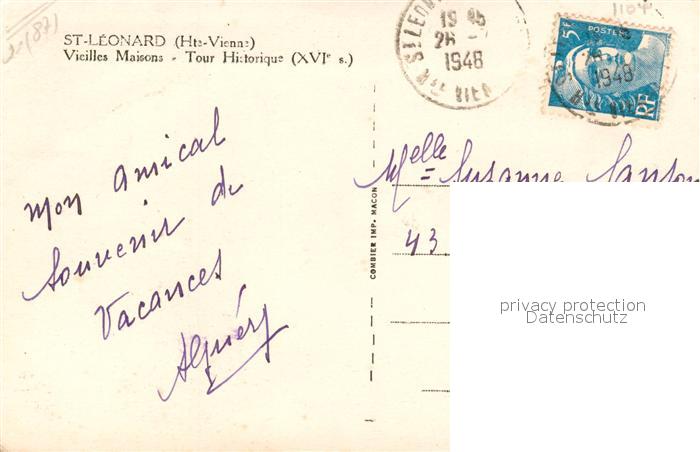 (87)
1104
ST-LÉONARD (Hte-Vienne)
Vieilles Maisons - Tour Historique (XVIe s.)
19 45
26 -
1948
ST LEON
HTE VIEN
5F
POSTES
RF
1948
mon amical
souvenir de
vacances
Melle Suzanne
43
COMBIER IMP. MACON
privacy protection
Datenschutz